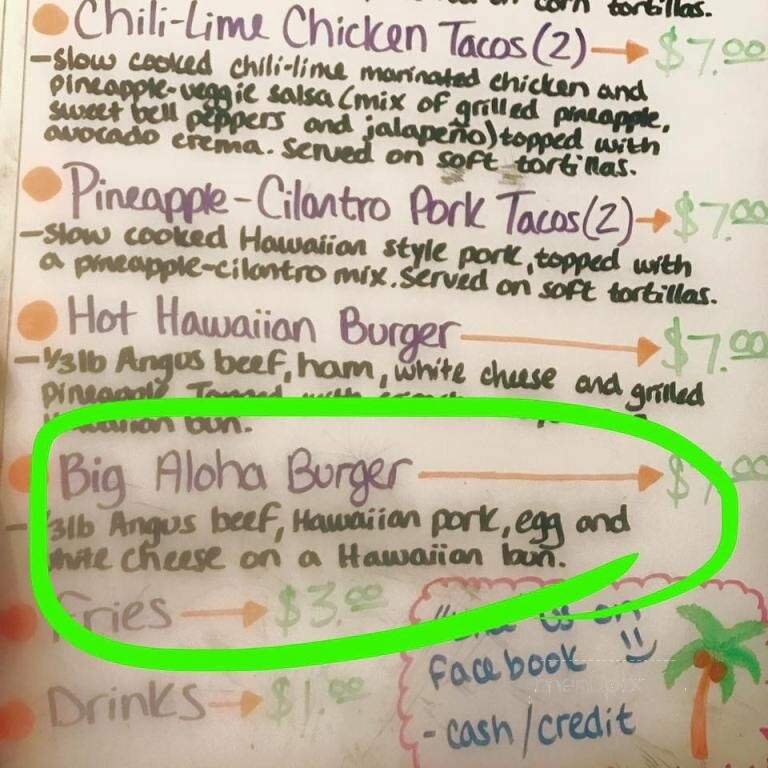 corn tortillas.
Chili-Lime Chicken Tacos (2) $7.00
-Slow cooked chili-lime marinated chicken and
pineapple-veggie salsa (mix of grilled pineapple,
sweet bell peppers and jalapeño) topped with
avocado crema. Served on soft tortillas.
Pineapple-Cilantro Pork Tacos (2) $7.00
-Slow cooked Hawaiian style pork, topped with
a pineapple-cilantro mix. Served on soft tortillas.
Hot Hawaiian Burger $7.00
-1/3lb Angus beef, ham, white cheese and grilled
pineapple. Topped with
Hawaiian bun.
Big Aloha Burger $7.00
-1/3lb Angus beef, Hawaiian pork, egg and
white cheese on a Hawaiian bun.
Fries $3.00
us on
facebook
Drinks $1.00
- cash/credit